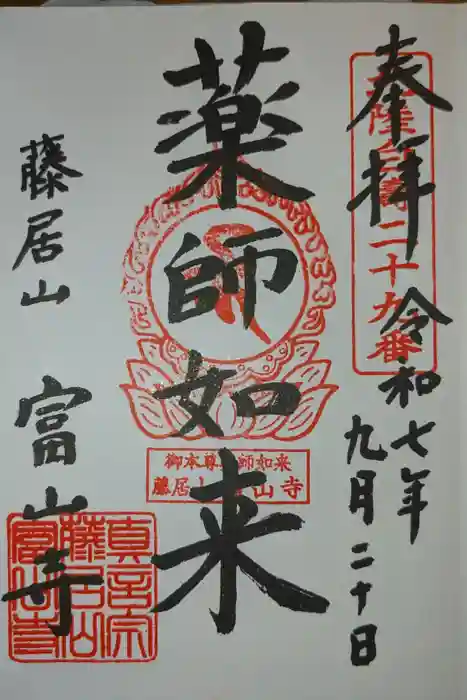 奉拝
令和七年
九月二十日
二十九番
薬師如来
御本尊薬師如来
藤居山富山寺
藤居山
富山寺
真言宗
藤居山
富山寺